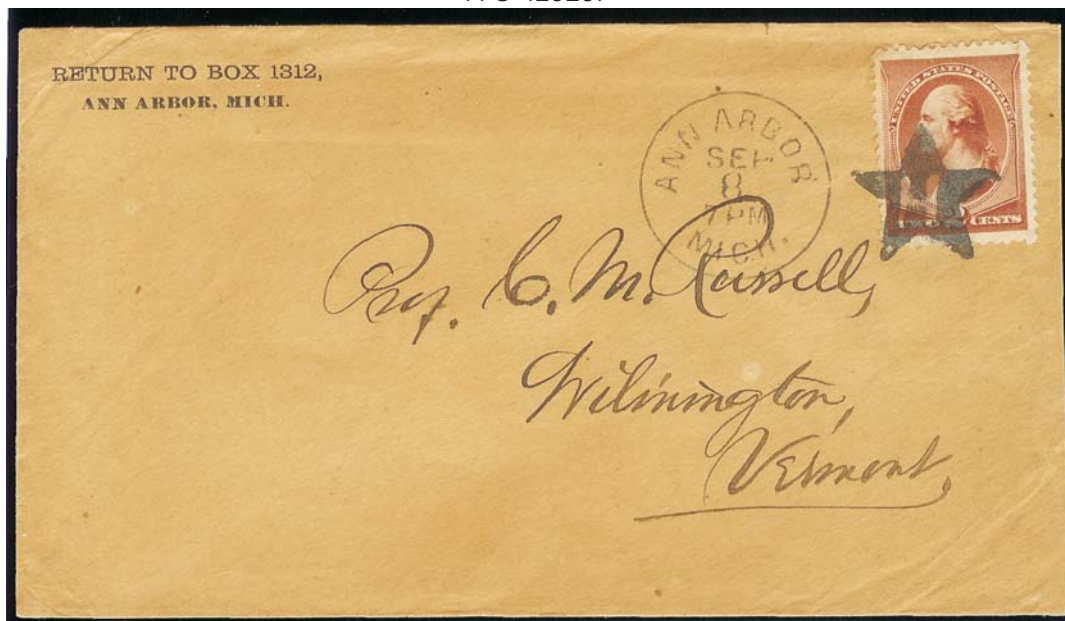 RETURN TO BOX 1312,
ANN ARBOR, MICH.
ANN ARBOR
SEP
8
7 PM
MICH.
UNITED STATES POSTAGE
CENTS
Prof. C. M. Russell,
Wilmington,
Vermont,